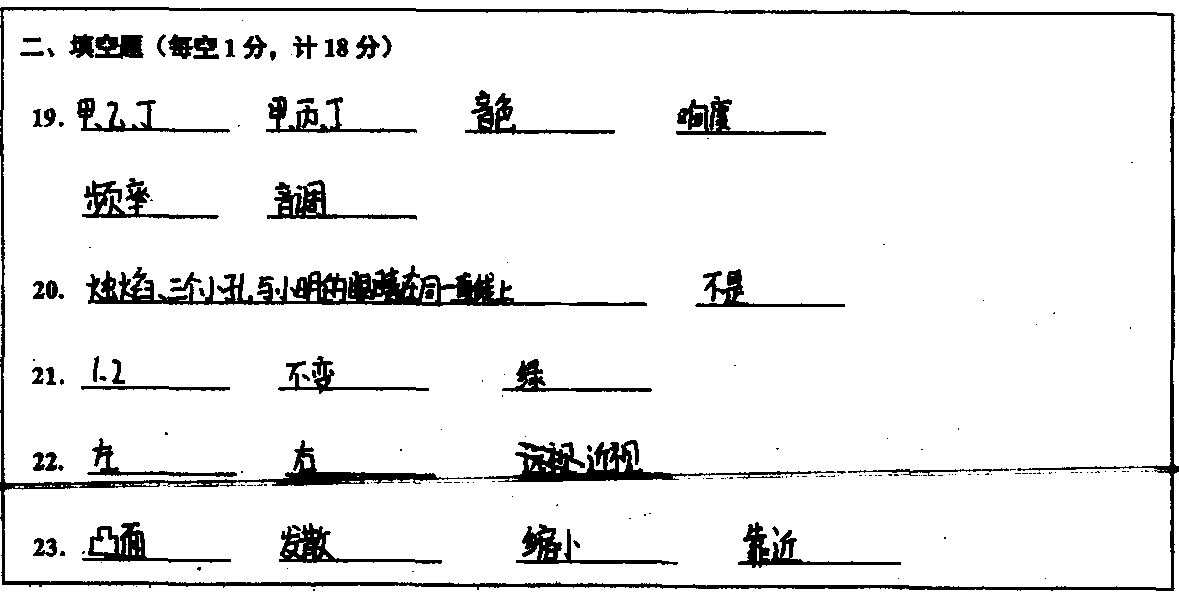 二、填空题（每空1分，计18分）
19. 甲、乙、丁 甲、丙、丁 音色 响度
频率 音调
20. 烛焰、三个小孔与小明的眼睛在同一直线上 不是
21. 1.2 不变 绿
22. 左 右 近视
23. 凸面 发散 缩小 靠近